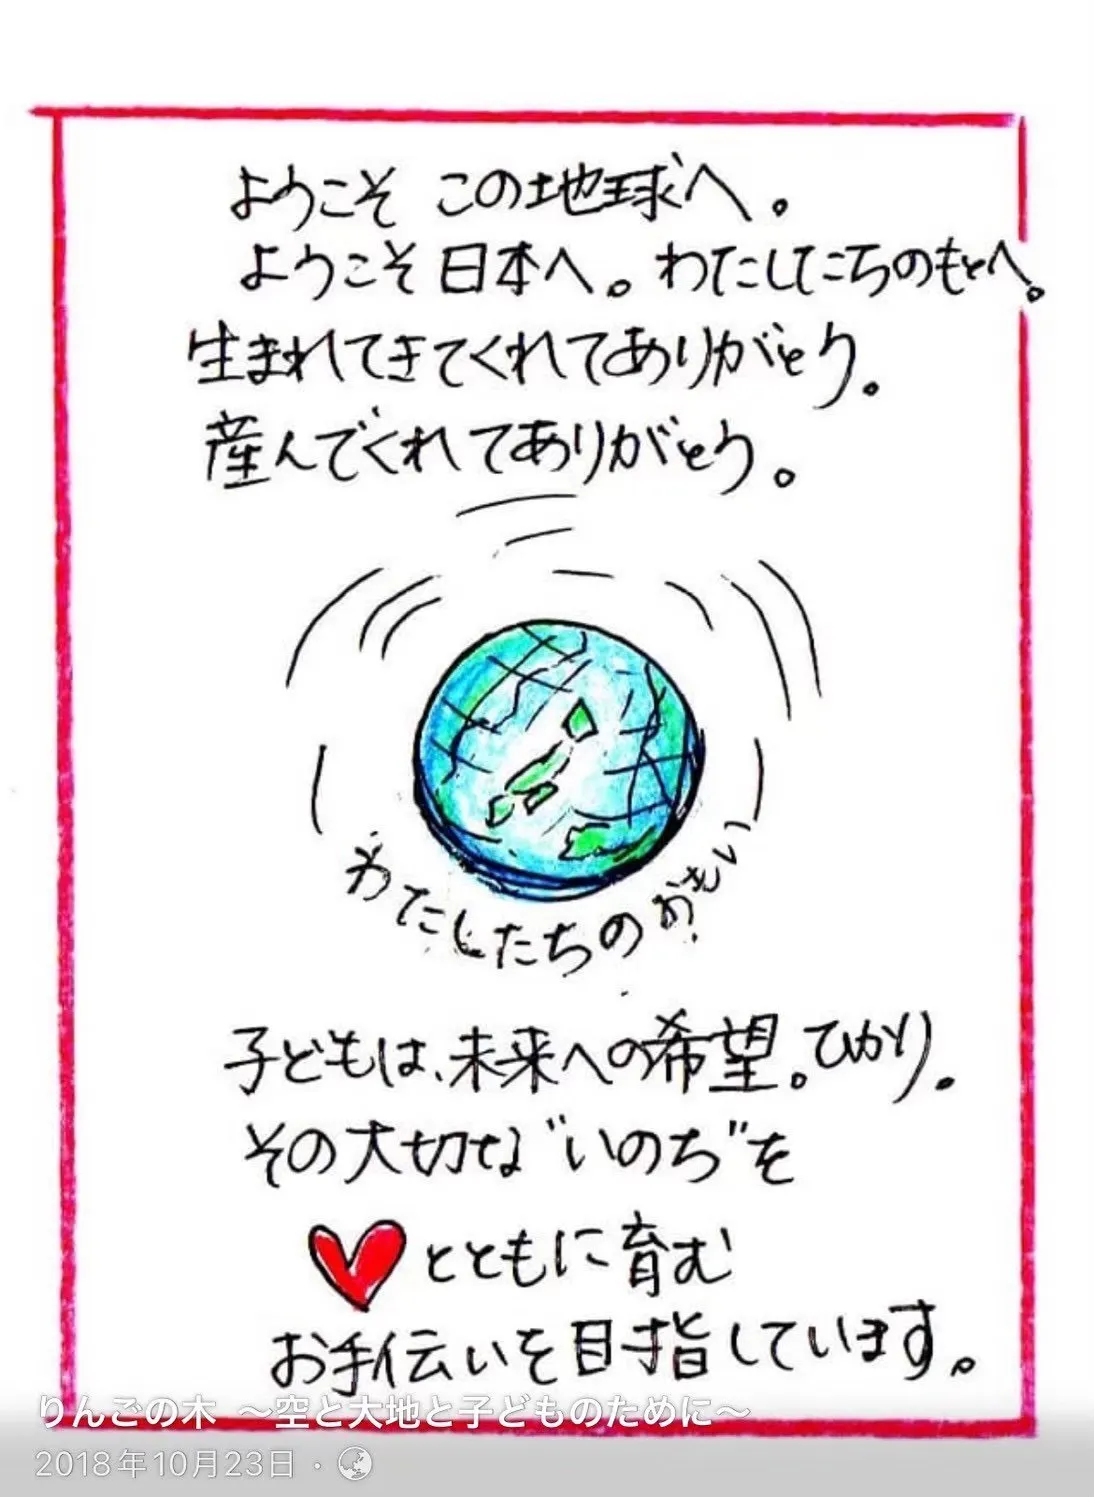 ようこそ この地球へ。
ようこそ日本へ。わたしたちのもとへ。
生まれてきてくれてありがとう。
産んでくれてありがとう。
わたしたちのおもい
子どもは、未来への希望。ひかり。
その大切な"いのち"を
とともに育む
お手伝いを目指しています。
りんごの木 〜空と大地と子どものために〜
2018年10月23日